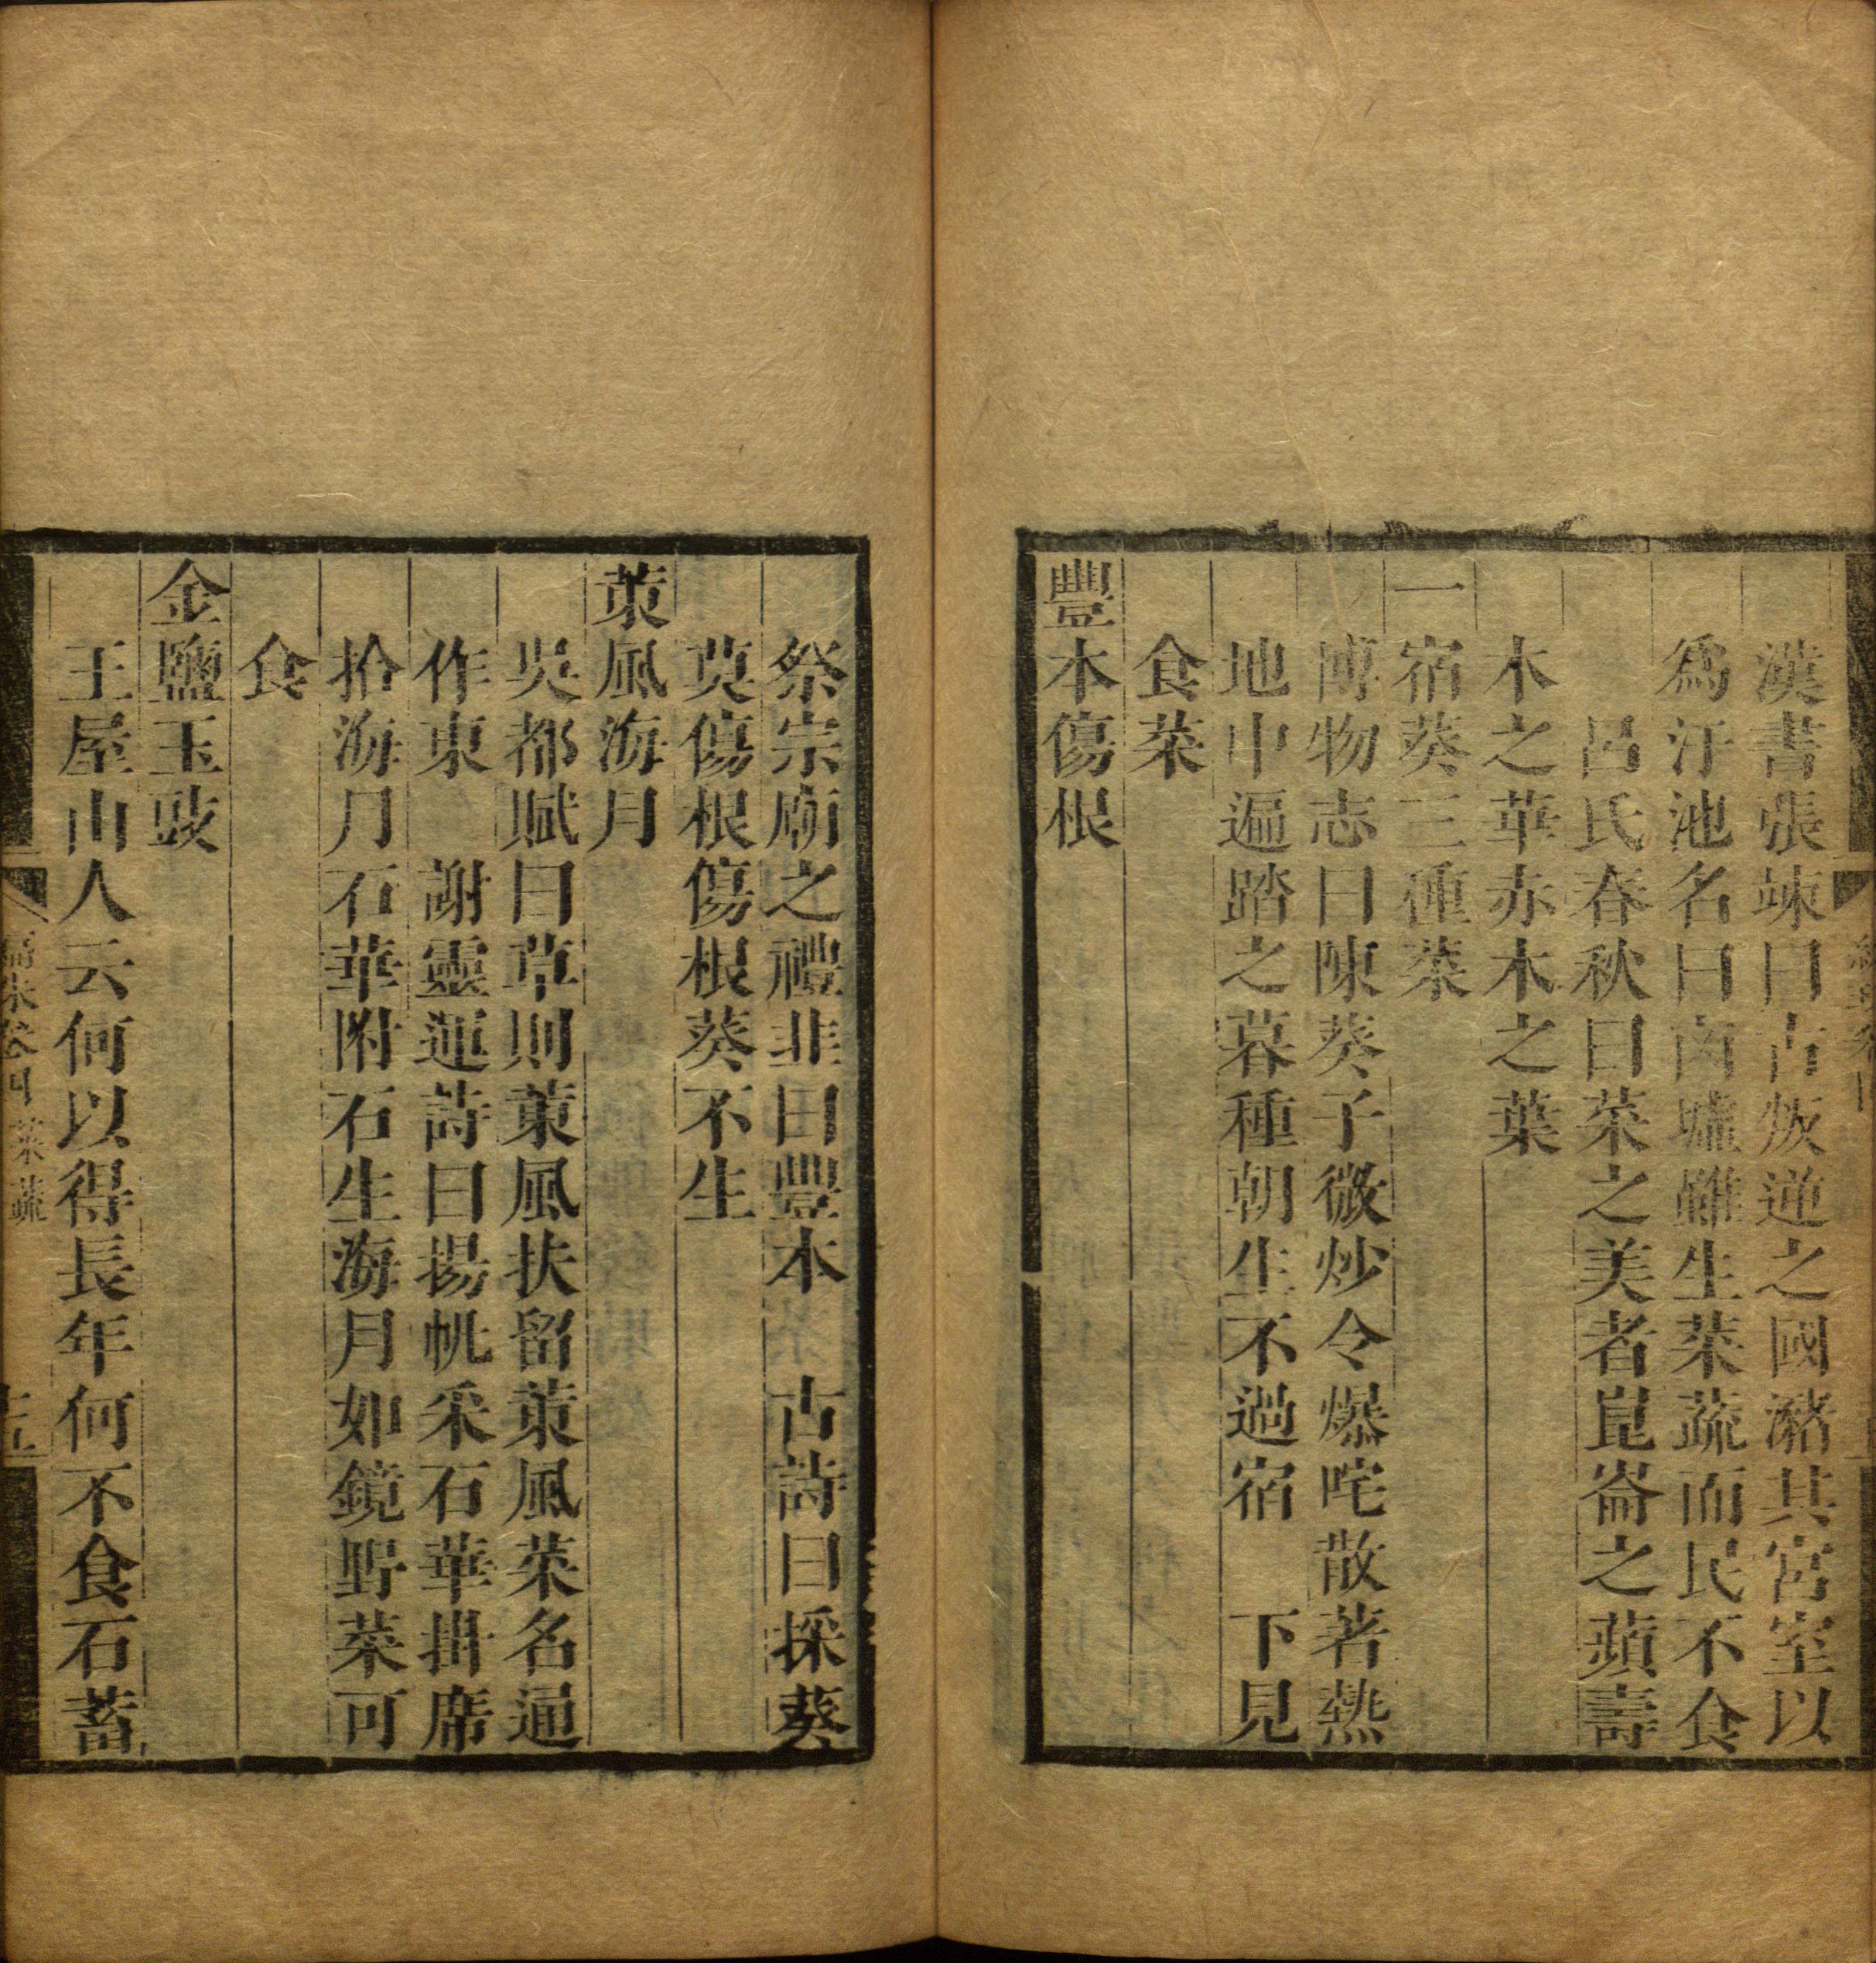 漢書張竦曰古叛逆之國瀦其宮室以
爲汙池名曰凶墟雖生菜蔬而民不食
呂氏春秋曰菜之美者崑崙之蘋壽
木之華赤木之葉
一宿葵三種菜
博物志曰陳葵子微炒令爆咤散著熱
地中遍踏之暮種朝生不過宿　下見
食菜
豐本傷根
祭宗廟之禮韭曰豐本　古詩曰採葵
莫傷根傷根葵不生
菄風海月
吳都賦曰草則菄風扶留菄風菜名通
作東　謝靈運詩曰揚帆采石華掛席
拾海月石華附石生海月如鏡野菜可
食
金鹽玉豉
王屋山人云何以得長年何不食石蓄
菜蔬